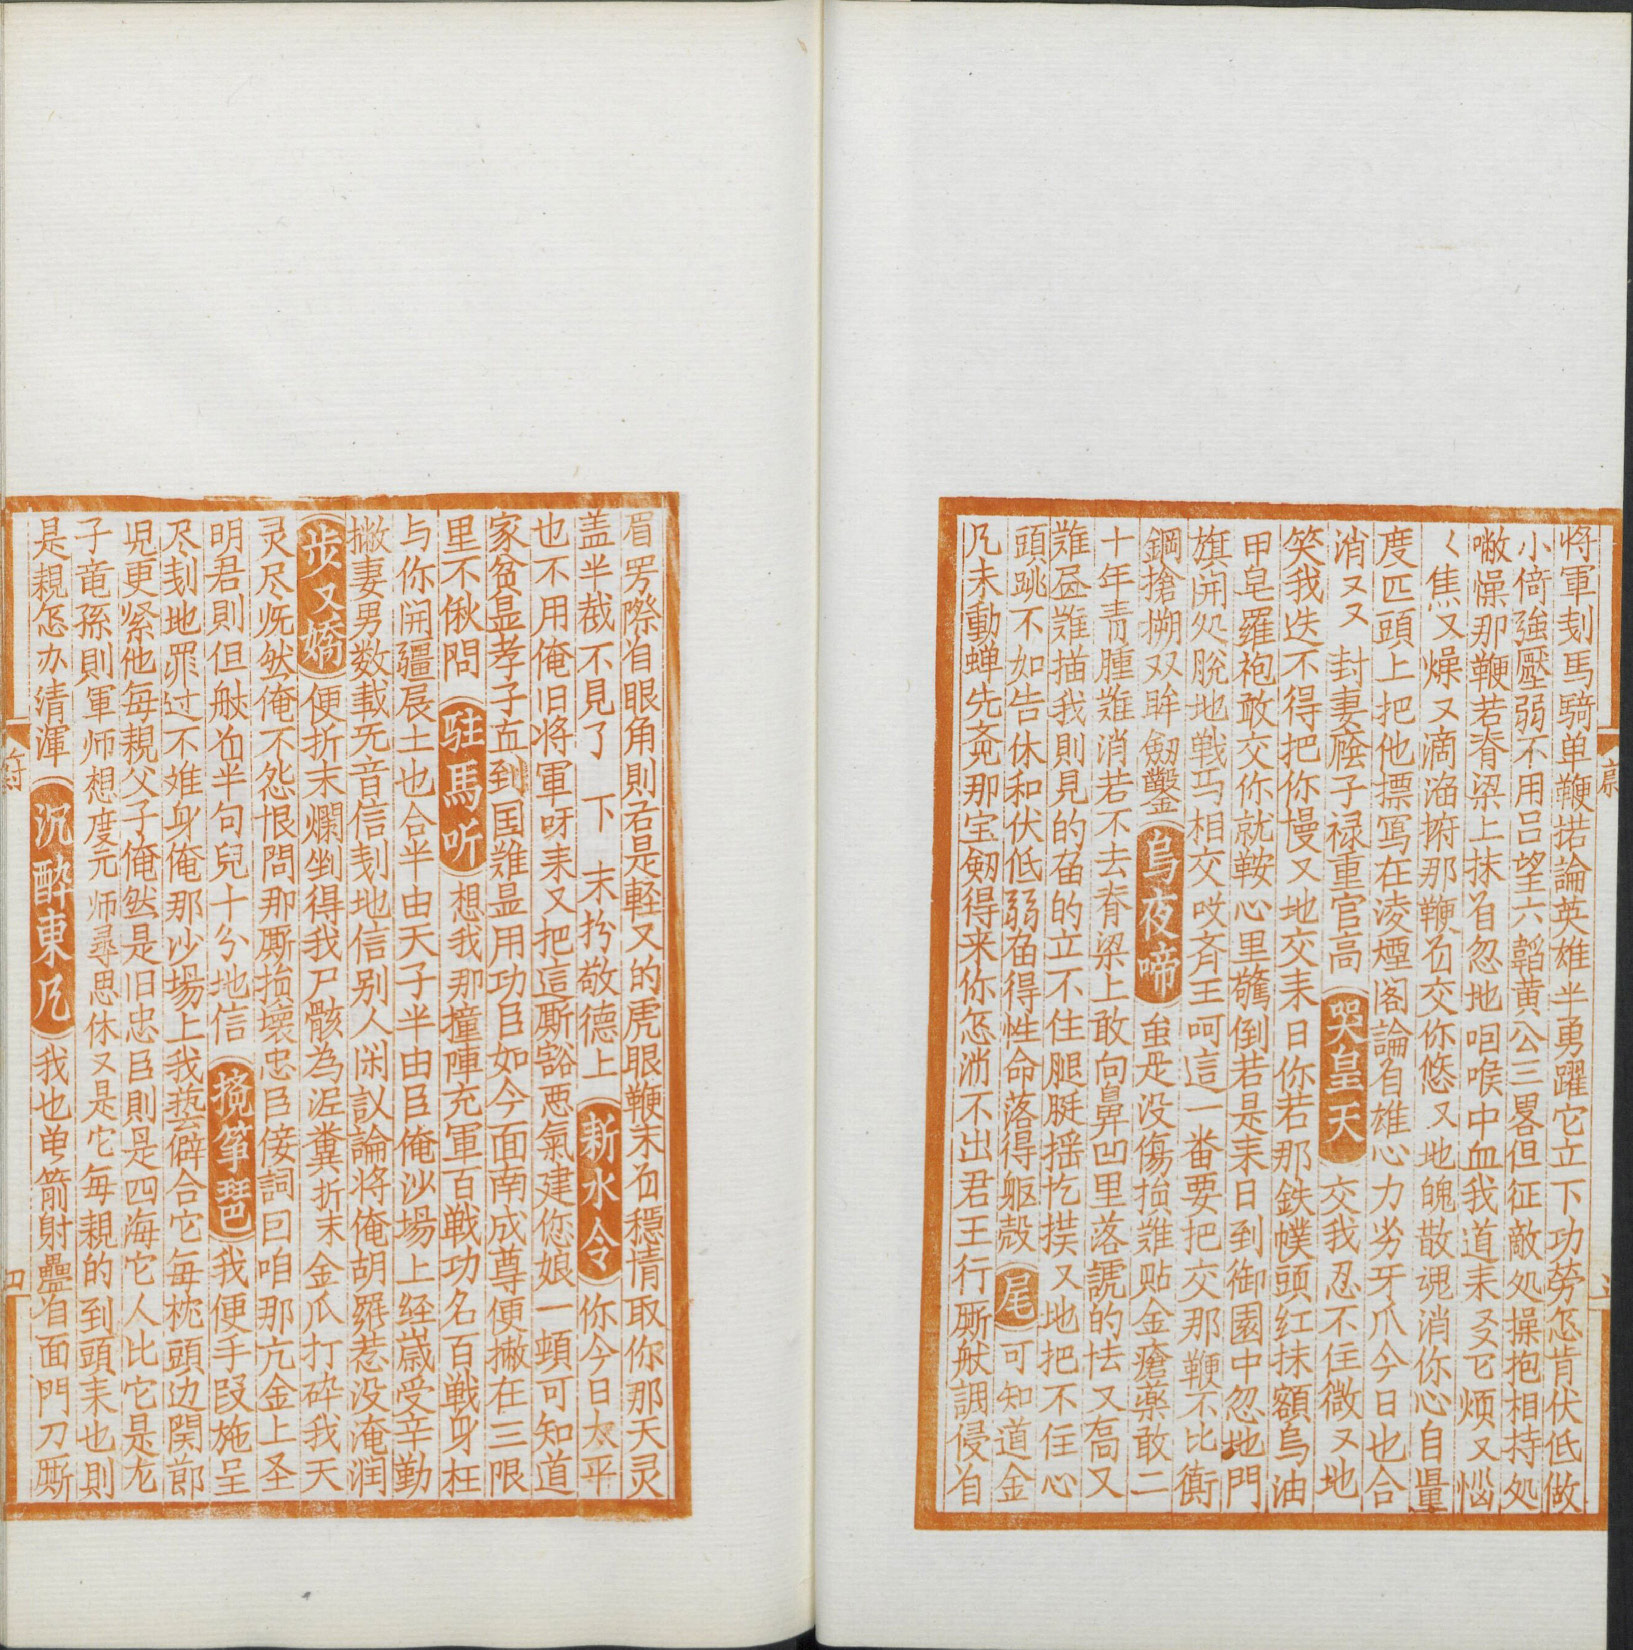 将軍刬馬騎单鞭掿論英雄半勇躍它立下功劳怎肯伏低做
小倚強壓弱不用吕望六韜黄公三畧但征敵処操抱相持処
憋懆那鞭若脊梁上抹着忽地咽喉中血我道来又它烦又惱
く焦又燥又滴溜撏那鞭着交你悠又地魄散魂消你心自量
度匹頭上把他摽写在凌煙阁論着雄心力劣牙爪今日也合
消又又　封妻廕子禄重官高　哭皇天　交我忍不住微又地
笑我迭不得把你慢又地交来日你若那鉄幞頭红抹額烏油
甲皂羅袍敢交你就鞍心里驚倒若是来日到御園中忽地門
旗開処脱地戦马相交哎齐王呵這一番要把交那鞭不比衠
鋼搶槊双眸劒鑿　烏夜啼　虽是没傷損難贴金瘡藥敢二
十年青腫難消若不去脊梁上敢向鼻凹里落諕的怯又喬又
難昼難描我則見的留的立不住腿脡摇圪撲又地把不住心
頭跳不如告休和伏低弱留得性命落得躯殼　尾　可知道金
凡未動蝉先斎那宝劒得来你怎消不出君王行厮般調侵着
眉罗際着眼角則若是軽又的虎眼鞭末着穏情取你那天灵
盖半截不見了　下　末扮敬德上　新水令　你今日太平
也不用俺旧将軍呀来又把這厮豁悪氣建您娘一頓可知道
家貧显孝子直到国難显用功臣如今面南成尊便撇在三限
里不偢問　駐馬听　想我那撞陣充軍百戦功名百戦身枉
与你開疆展土也合半由天子半由臣俺沙場上经歳受辛勤
撇妻男数載无音信刬地信别人闲议論将俺胡羅惹没淹润
步又嬌　便折末爛剉得我尸骸為泥糞折末金瓜打砕我天
灵尽既然俺不怨恨問那厮損壊忠臣佞詞曰咱那亢金上圣
明君則但般着半句兒十分地信　搅筝琶　我便手段施呈
尽刬地罪过不难身俺那沙場上我藝僻合它毎枕頭边関節
児更紧他毎親父子俺然是旧忠臣則是四海它人比它是龙
子竜孫則軍师想度元师尋思休又是它毎親的到頭来也則
是親怎办清渾　沉醉東凡　我也曽箭射畳着面門刀厮